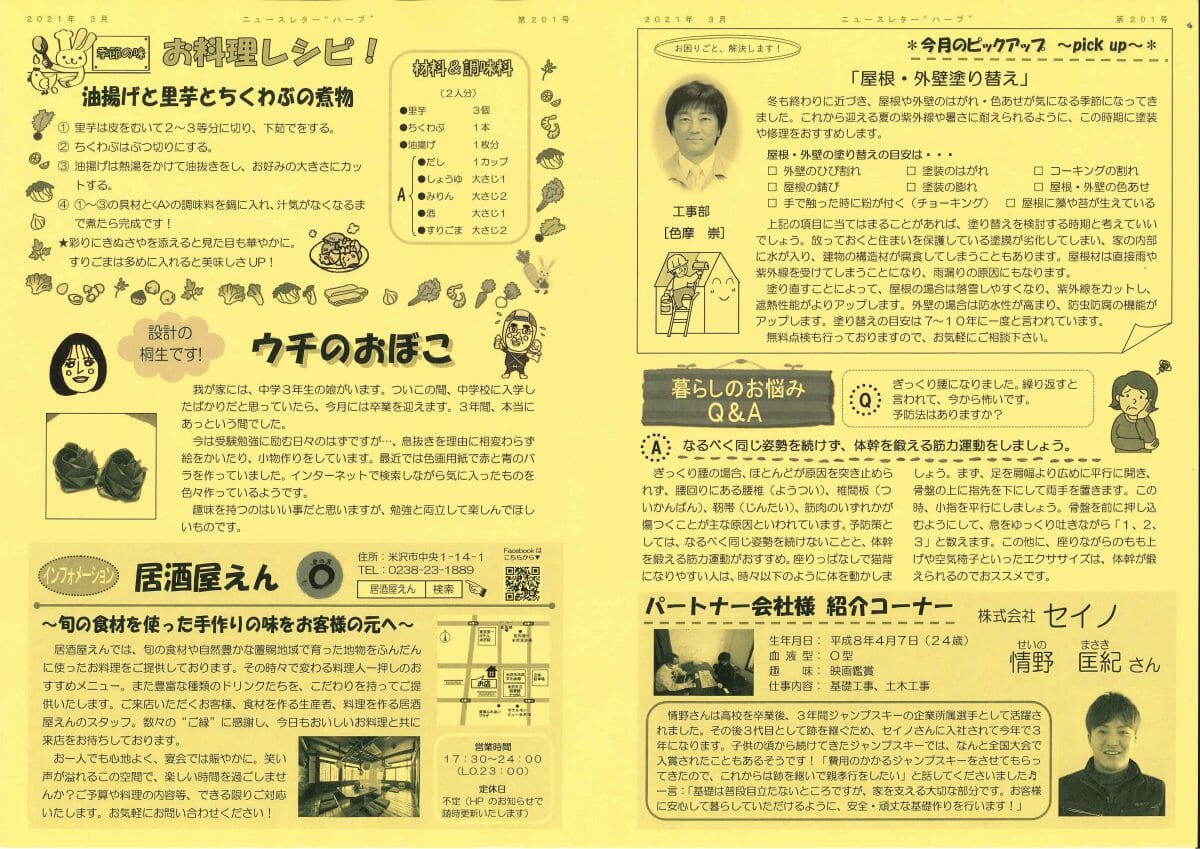 2021年 3月
ニュースレター“ハーブ”
第201号
季節の味
お料理レシピ！
油揚げと里芋とちくわぶの煮物
① 里芋は皮をむいて２～３等分に切り、下茹でをする。
② ちくわぶはぶつ切りにする。
③ 油揚げは熱湯をかけて油抜きをし、お好みの大きさにカッ
トする。
④ ①～③の具材と<A>の調味料を鍋に入れ、汁気がなくなるま
で煮たら完成です！
★彩りにきぬさやを添えると見た目も華やかに。
すりごまは多めに入れると美味しさUP！
材料＆調味料
（２人分）
●里芋 ３個
●ちくわぶ １本
●油揚げ １枚分
A
●だし １カップ
●しょうゆ 大さじ１
●みりん 大さじ２
●酒 大さじ１
●すりごま 大さじ２
設計の
桐生です！
ウチのおぼこ
我が家には、中学３年生の娘がいます。ついこの間、中学校に入学し
たばかりだと思っていたら、今月には卒業を迎えます。３年間、本当に
あっという間でした。
今は受験勉強に励む日々のはずですが…、息抜きを理由に相変わらず
絵をかいたり、小物作りをしています。最近では色画用紙で赤と青のバ
ラを作っていました。インターネットで検索しながら気に入ったものを
色々作っているようです。
趣味を持つのはいい事だと思いますが、勉強と両立して楽しんでほし
いものです。
インフォメーション
居酒屋えん
住所：米沢市中央1-14-1
TEL：0238-23-1889
居酒屋えん 検索
Facebookは
こちらから▼
～旬の食材を使った手作りの味をお客様の元へ～
居酒屋えんでは、旬の食材や自然豊かな置賜地域で育った地物をふんだん
に使ったお料理をご提供しております。その時々で変わる料理人一押しのお
すすめメニュー。また豊富な種類のドリンクたちを、こだわりを持ってご提
供いたします。ご来店いただくお客様、食材を作る生産者、料理を作る居酒
屋えんのスタッフ。数々の“ご縁”に感謝し、今日もおいしいお料理と共に
来店をお待ちしております。
お一人でも心地よく、宴会では賑やかに。笑い
声が溢れるこの空間で、楽しい時間を過ごしませ
んか？ご予算や料理の内容等、できる限りご対応
いたします。お気軽にお問い合わせください！
お店
営業時間
17：30～24：00
（L.O.23：00）
定休日
不定（HP のお知らせで
随時更新いたします）
2021年 3月
ニュースレター“ハーブ”
第201号
お困りごと、解決します！
＊今月のピックアップ ～pick up～＊
「屋根・外壁塗り替え」
冬も終わりに近づき、屋根や外壁のはがれ・色あせが気になる季節になってき
ました。これから迎える夏の紫外線や暑さに耐えられるように、この時期に塗装
や修理をおすすめします。
屋根・外壁の塗り替えの目安は・・・
□ 外壁のひび割れ □ 塗装のはがれ □ コーキングの割れ
□ 屋根の錆び □ 塗装の膨れ □ 屋根・外壁の色あせ
□ 手で触った時に粉が付く（チョーキング） □ 屋根に藻や苔が生えている
工事部
[色摩 崇]
上記の項目に当てはまることがあれば、塗り替えを検討する時期と考えていい
でしょう。放っておくと住まいを保護している塗膜が劣化してしまい、家の内部
に水が入り、建物の構造材が腐食してしまうこともあります。屋根材は直接雨や
紫外線を受けてしまうことになり、雨漏りの原因にもなります。
塗り直すことによって、屋根の場合は落雪しやすくなり、紫外線をカットし、
遮熱性能がよりアップします。外壁の場合は防水性が高まり、防虫防腐の機能が
アップします。塗り替えの目安は７～１０年に一度と言われています。
無料点検も行っておりますので、お気軽にご相談下さい。
暮らしのお悩み
Q&A
Q
ぎっくり腰になりました。繰り返すと
言われて、今から怖いです。
予防法はありますか？
A なるべく同じ姿勢を続けず、体幹を鍛える筋力運動をしましょう。
ぎっくり腰の場合、ほとんどが原因を突き止めら
れず、腰回りにある腰椎（ようつい）、椎間板（つ
いかんばん）、靭帯（じんたい）、筋肉のいずれかが
傷つくことが主な原因といわれています。予防策と
しては、なるべく同じ姿勢を続けないことと、体幹
を鍛える筋力運動がおすすめ。座りっぱなしで猫背
になりやすい人は、時々以下のように体を動かしま
しょう。まず、足を肩幅より広めに平行に開き、
骨盤の上に指先を下にして両手を置きます。この
時、小指を平行にしましょう。骨盤を前に押し込
むようにして、息をゆっくり吐きながら「１、２、
３」と数えます。この他に、座りながらのもも上
げや空気椅子といったエクササイズは、体幹が鍛
えられるのでおススメです。
パートナー会社様 紹介コーナー
株式会社 セイノ
生年月日： 平成８年４月７日（２４歳）
血 液 型： O型
趣 味： 映画鑑賞
仕事内容： 基礎工事、土木工事
せいの まさき
情野 匡紀 さん
情野さんは高校を卒業後、３年間ジャンプスキーの企業所属選手として活躍さ
れました。その後３代目として跡を継ぐため、セイノさんに入社されて今年で３
年になります。子供の頃から続けてきたジャンプスキーでは、なんと全国大会で
入賞されたこともあるそうです！「費用のかかるジャンプスキーをさせてもらっ
てきたので、これからは跡を継いで親孝行をしたい」と話してくださいました♬
一言：「基礎は普段目立たないところですが、家を支える大切な部分です。お客様
に安心して暮らしていただけるように、安全・頑丈な基礎作りを行います！」